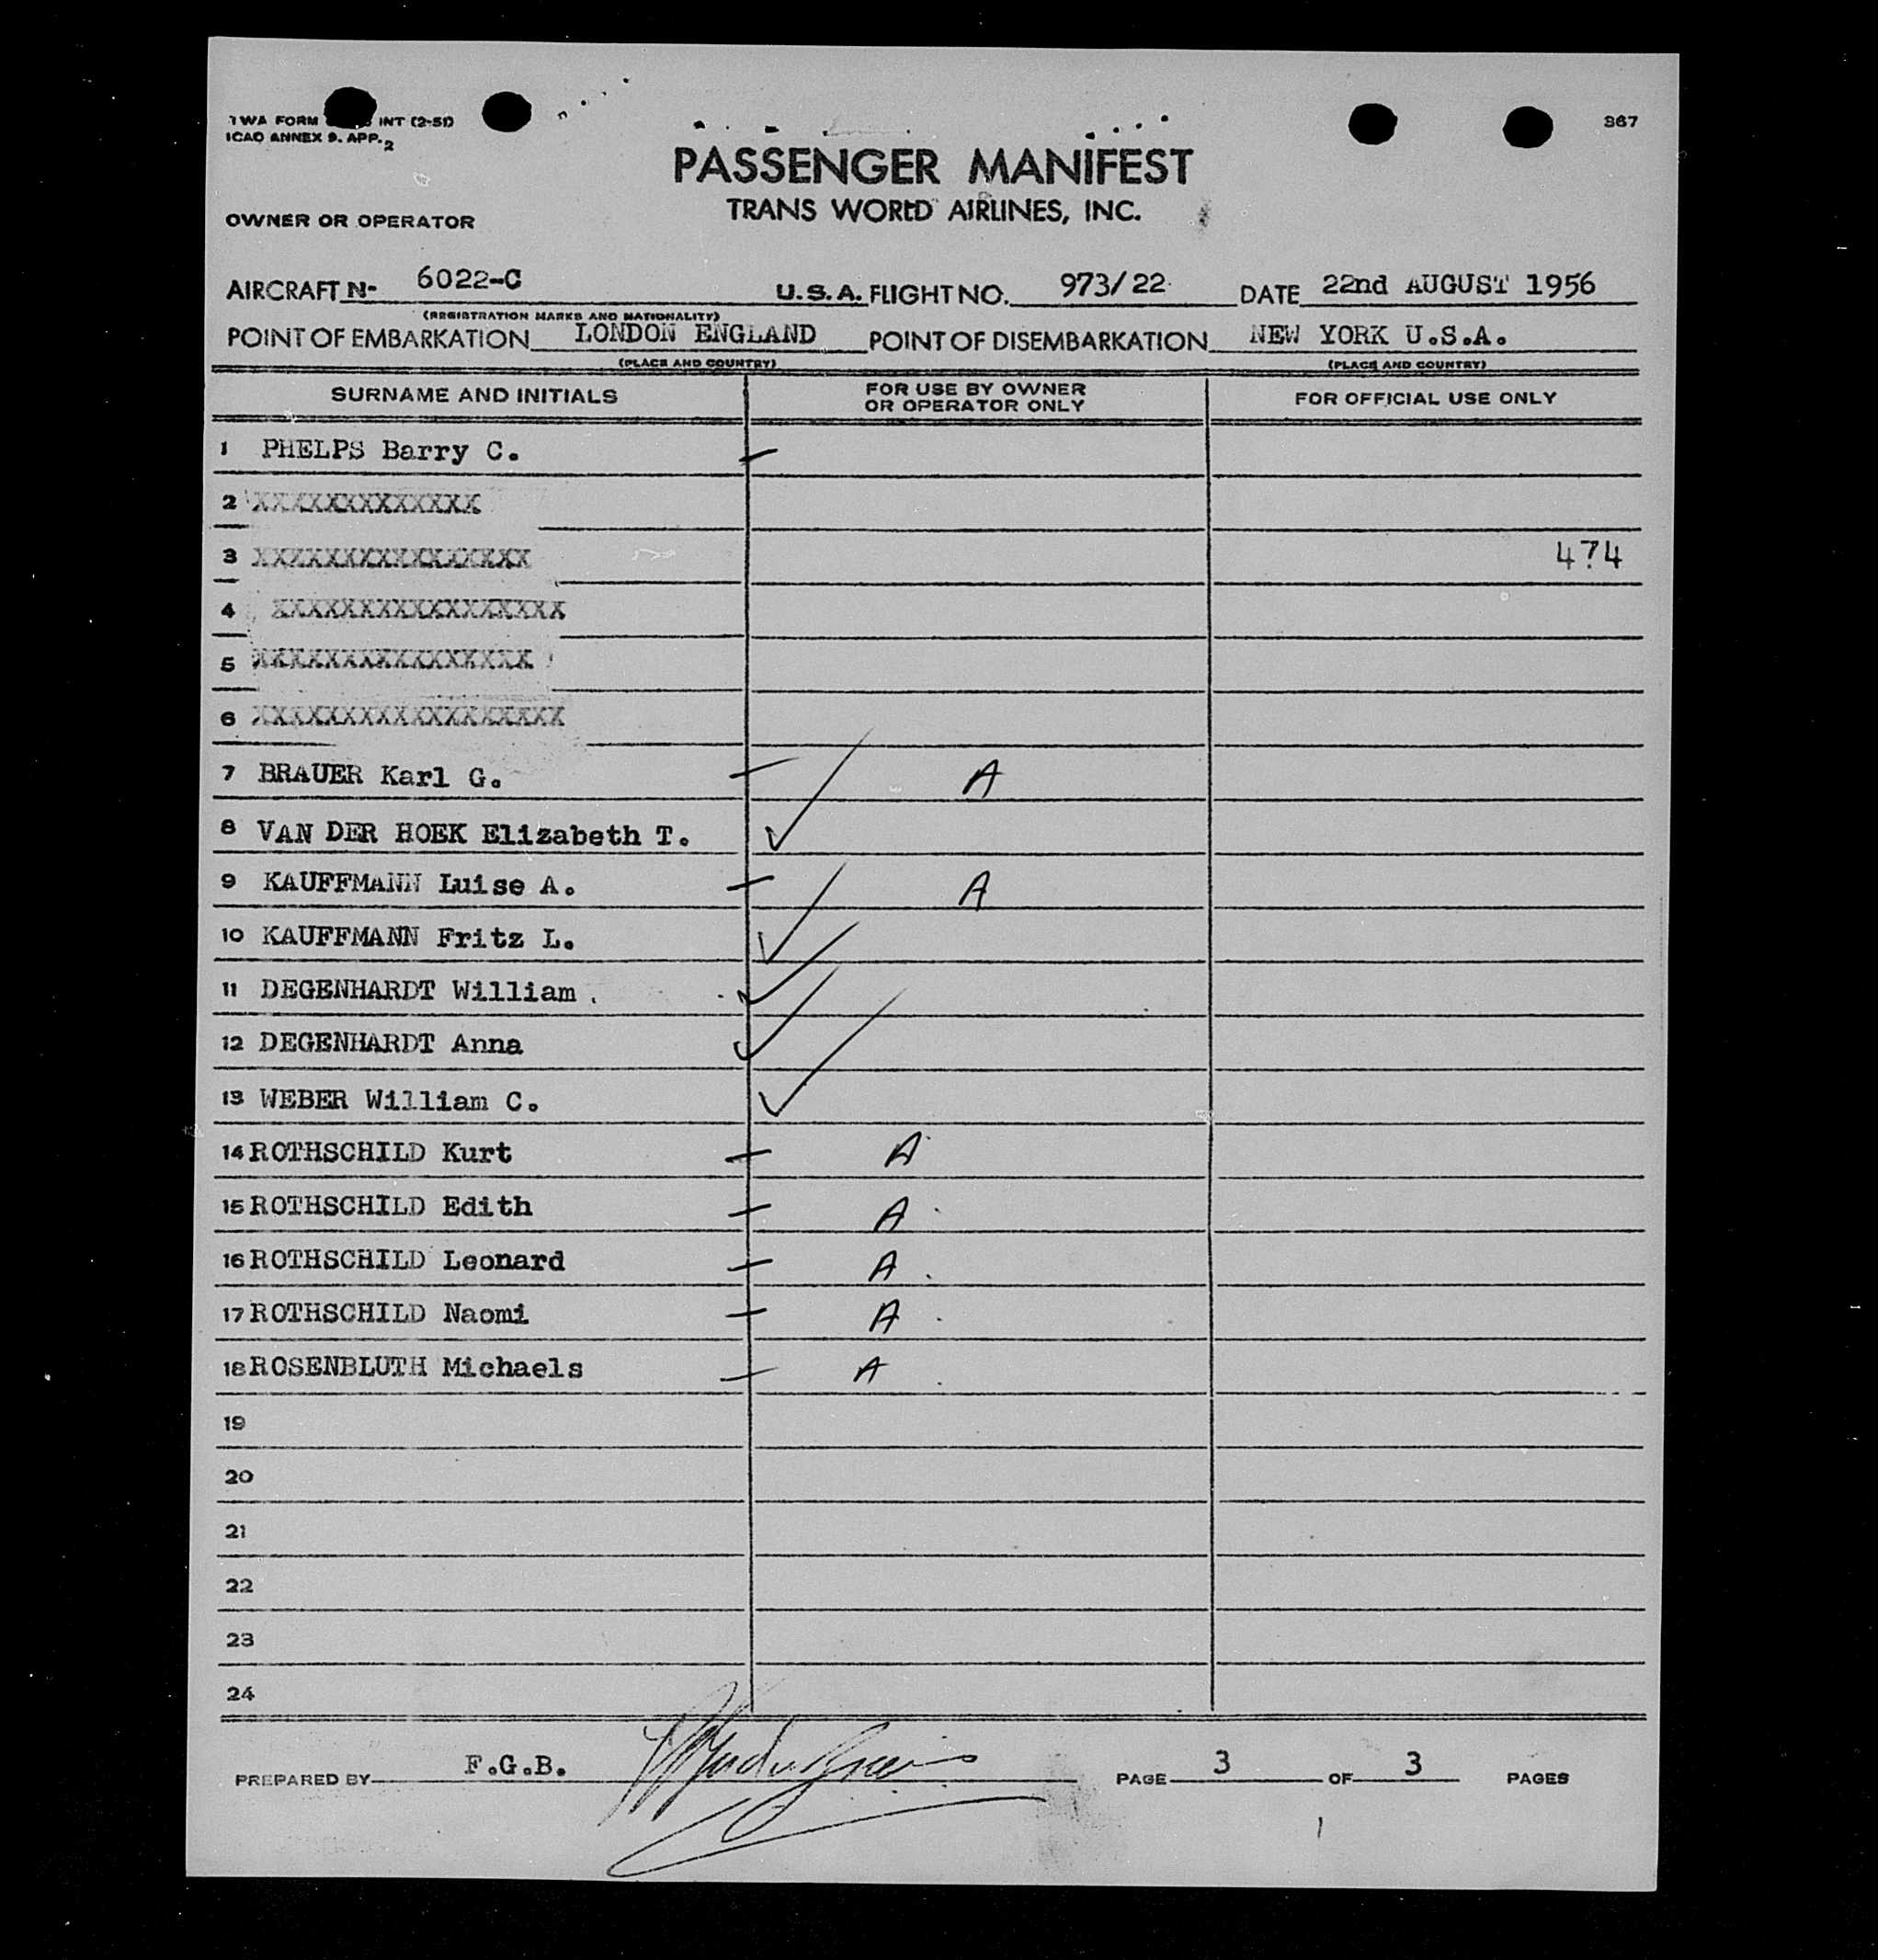 TWA FORM INT (2-51)
ICAO ANNEX 9. APP. 2
367
PASSENGER MANIFEST
TRANS WORLD AIRLINES, INC.
OWNER OR OPERATOR
AIRCRAFT N- 6022-C U.S.A. FLIGHT NO. 973/22 DATE 22nd AUGUST 1956
(REGISTRATION MARKS AND NATIONALITY)
POINT OF EMBARKATION LONDON ENGLAND POINT OF DISEMBARKATION NEW YORK U.S.A.
(PLACE AND COUNTRY) (PLACE AND COUNTRY)
SURNAME AND INITIALS FOR USE BY OWNER OR OPERATOR ONLY FOR OFFICIAL USE ONLY
1 PHELPS Barry C. —
2 XXXXXXXXXXXXXX
3 XXXXXXXXXXXXXXXXX 474
4 XXXXXXXXXXXXXXXXXX
5 XXXXXXXXXXXXXXXXX
6 XXXXXXXXXXXXXXXXXXX
7 BRAUER Karl G. — A
8 VAN DER HOEK Elizabeth T. ✓
9 KAUFFMANN Luise A. — A
10 KAUFFMANN Fritz L. ✓
11 DEGENHARDT William . ✓
12 DEGENHARDT Anna ✓
13 WEBER William C. ✓
14 ROTHSCHILD Kurt — A
15 ROTHSCHILD Edith — A
16 ROTHSCHILD Leonard — A
17 ROTHSCHILD Naomi — A
18 ROSENBLUTH Michaels — A
19
20
21
22
23
24
PREPARED BY F.G.B. PAGE 3 OF 3 PAGES